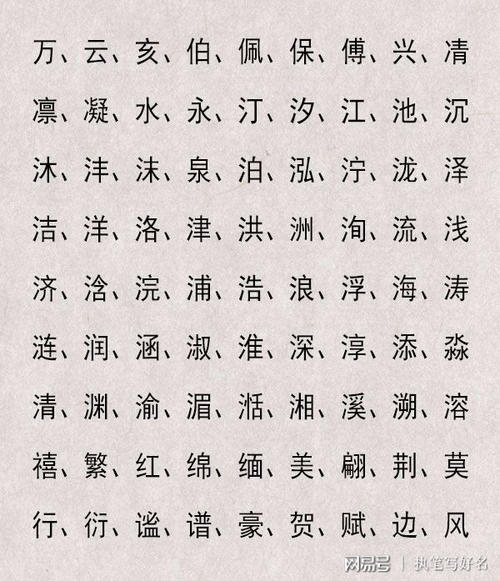 万、云、亥、伯、佩、保、傅、兴、凊
凛、凝、水、永、汀、汐、江、池、沉
沐、沣、沫、泉、泊、泓、泞、泷、泽
洁、洋、洛、津、洪、洲、洵、流、浅
济、浛、浣、浦、浩、浪、浮、海、涛
涟、润、涵、淑、淮、深、淳、添、淼
清、渊、渝、湄、湉、湘、溪、溯、溶
禧、繁、红、绵、缅、美、翩、荆、莫
行、衍、谧、谱、豪、贺、赋、边、风
网易号 | 执笔写好名